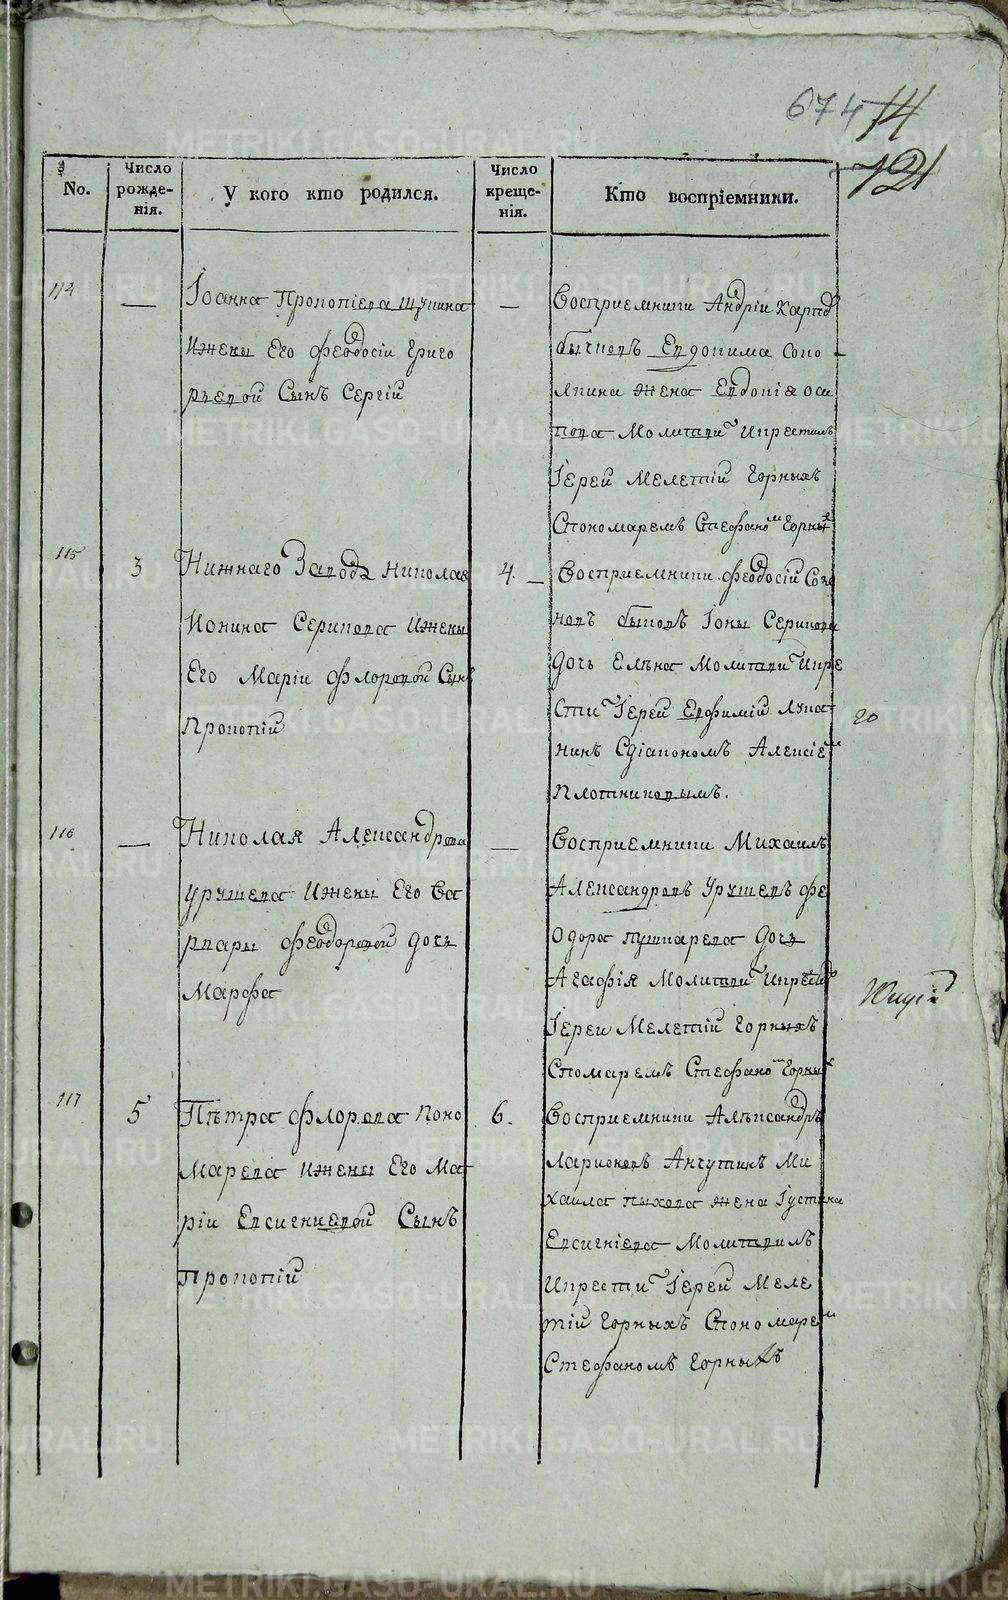 674 14
121
No.
Число рожде-нія.
У кого кто родился.
Число креще-нія.
Кто воспріемники.
114
—
Іоанна Прокопіева
Ижены Его Феодосіи Григо
рьевой Сынъ Сергій
—
Восприемники Андрій
Евдокима Соко
жена Евдокіа
Молитви Икрестилъ
Іерей Мелетій Горныхъ
Спономаремъ Стефаномъ Горных
115
3
Нижнаго Завода Николаа
Ионина Серикова Ижены
Его Маріи Флоровой Сынъ
Прокопій
4.
Восприемники Феодосій
Іоны Серикова
дочь Елѣна Молитви Икре
сти Іерей Евфимій Лука
нинъ Сдіакономъ Алексіем
Плотниковымъ.
20
116
—
Николая Александрова
Урушева Ижены Его Ва
рвары Феодоровой дочь
Марфа
—
Восприемники Михаилъ
Александровъ Урушевъ Фе
одора Пушкарева дочь
Агафія Молитви Икрести
Іереи Мелетій Горныхъ
Спомаремъ Стефаном Горных
117
5
Пѣтра Флорова Поно
марева Ижены Его Ма
ріи Евсигниевой Сынъ
Прокопій
6.
Восприемники Алѣксандръ
Ларионовъ Анчутинъ Ми
хаила Пыхова жена Іустина
Евсигніева Молитвилъ
Икрести Іерей Меле
тій Горныхъ Спономарем
Стефаномъ Горныхъ
METRIKI.GASO-URAL.RU